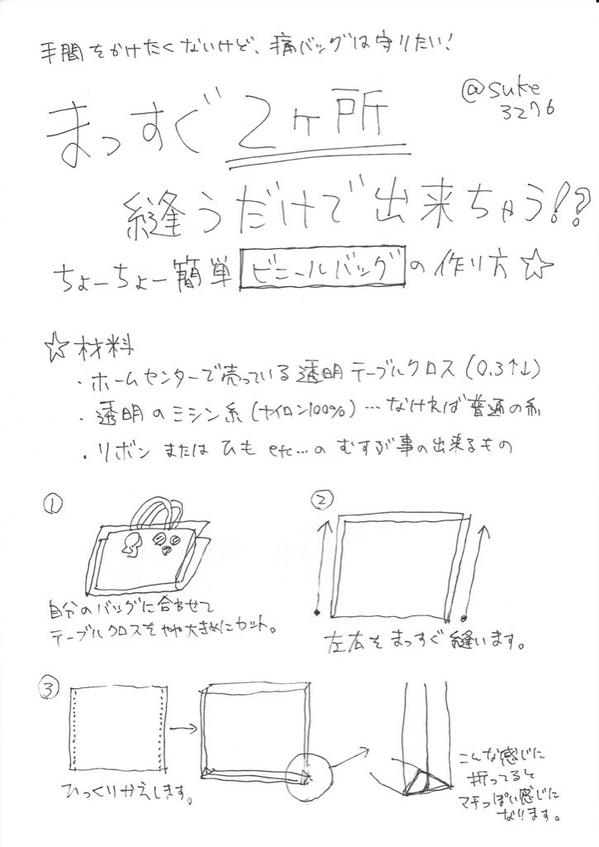 手間をかけたくないけど、痛バッグは守りたい!
@suke
3276
まっすぐ2ヶ所
縫うだけで出来ちゃう!?
ちょーちょー簡単ビニールバッグの作り方☆
☆材料
・ホームセンターで売っている透明テーブルクロス(0.3↑↓)
・透明のミシン糸(ナイロン100%)…なければ普通の糸
・リボン または ひも etc…の むすぶ事の出来るもの
①
自分のバッグに合わせて
テーブルクロスをやや大きめにカット。
②
左右をまっすぐ縫います。
③
ひっくりかえします。
こんな感じに
折ってると
マチっぽい感じに
なります。